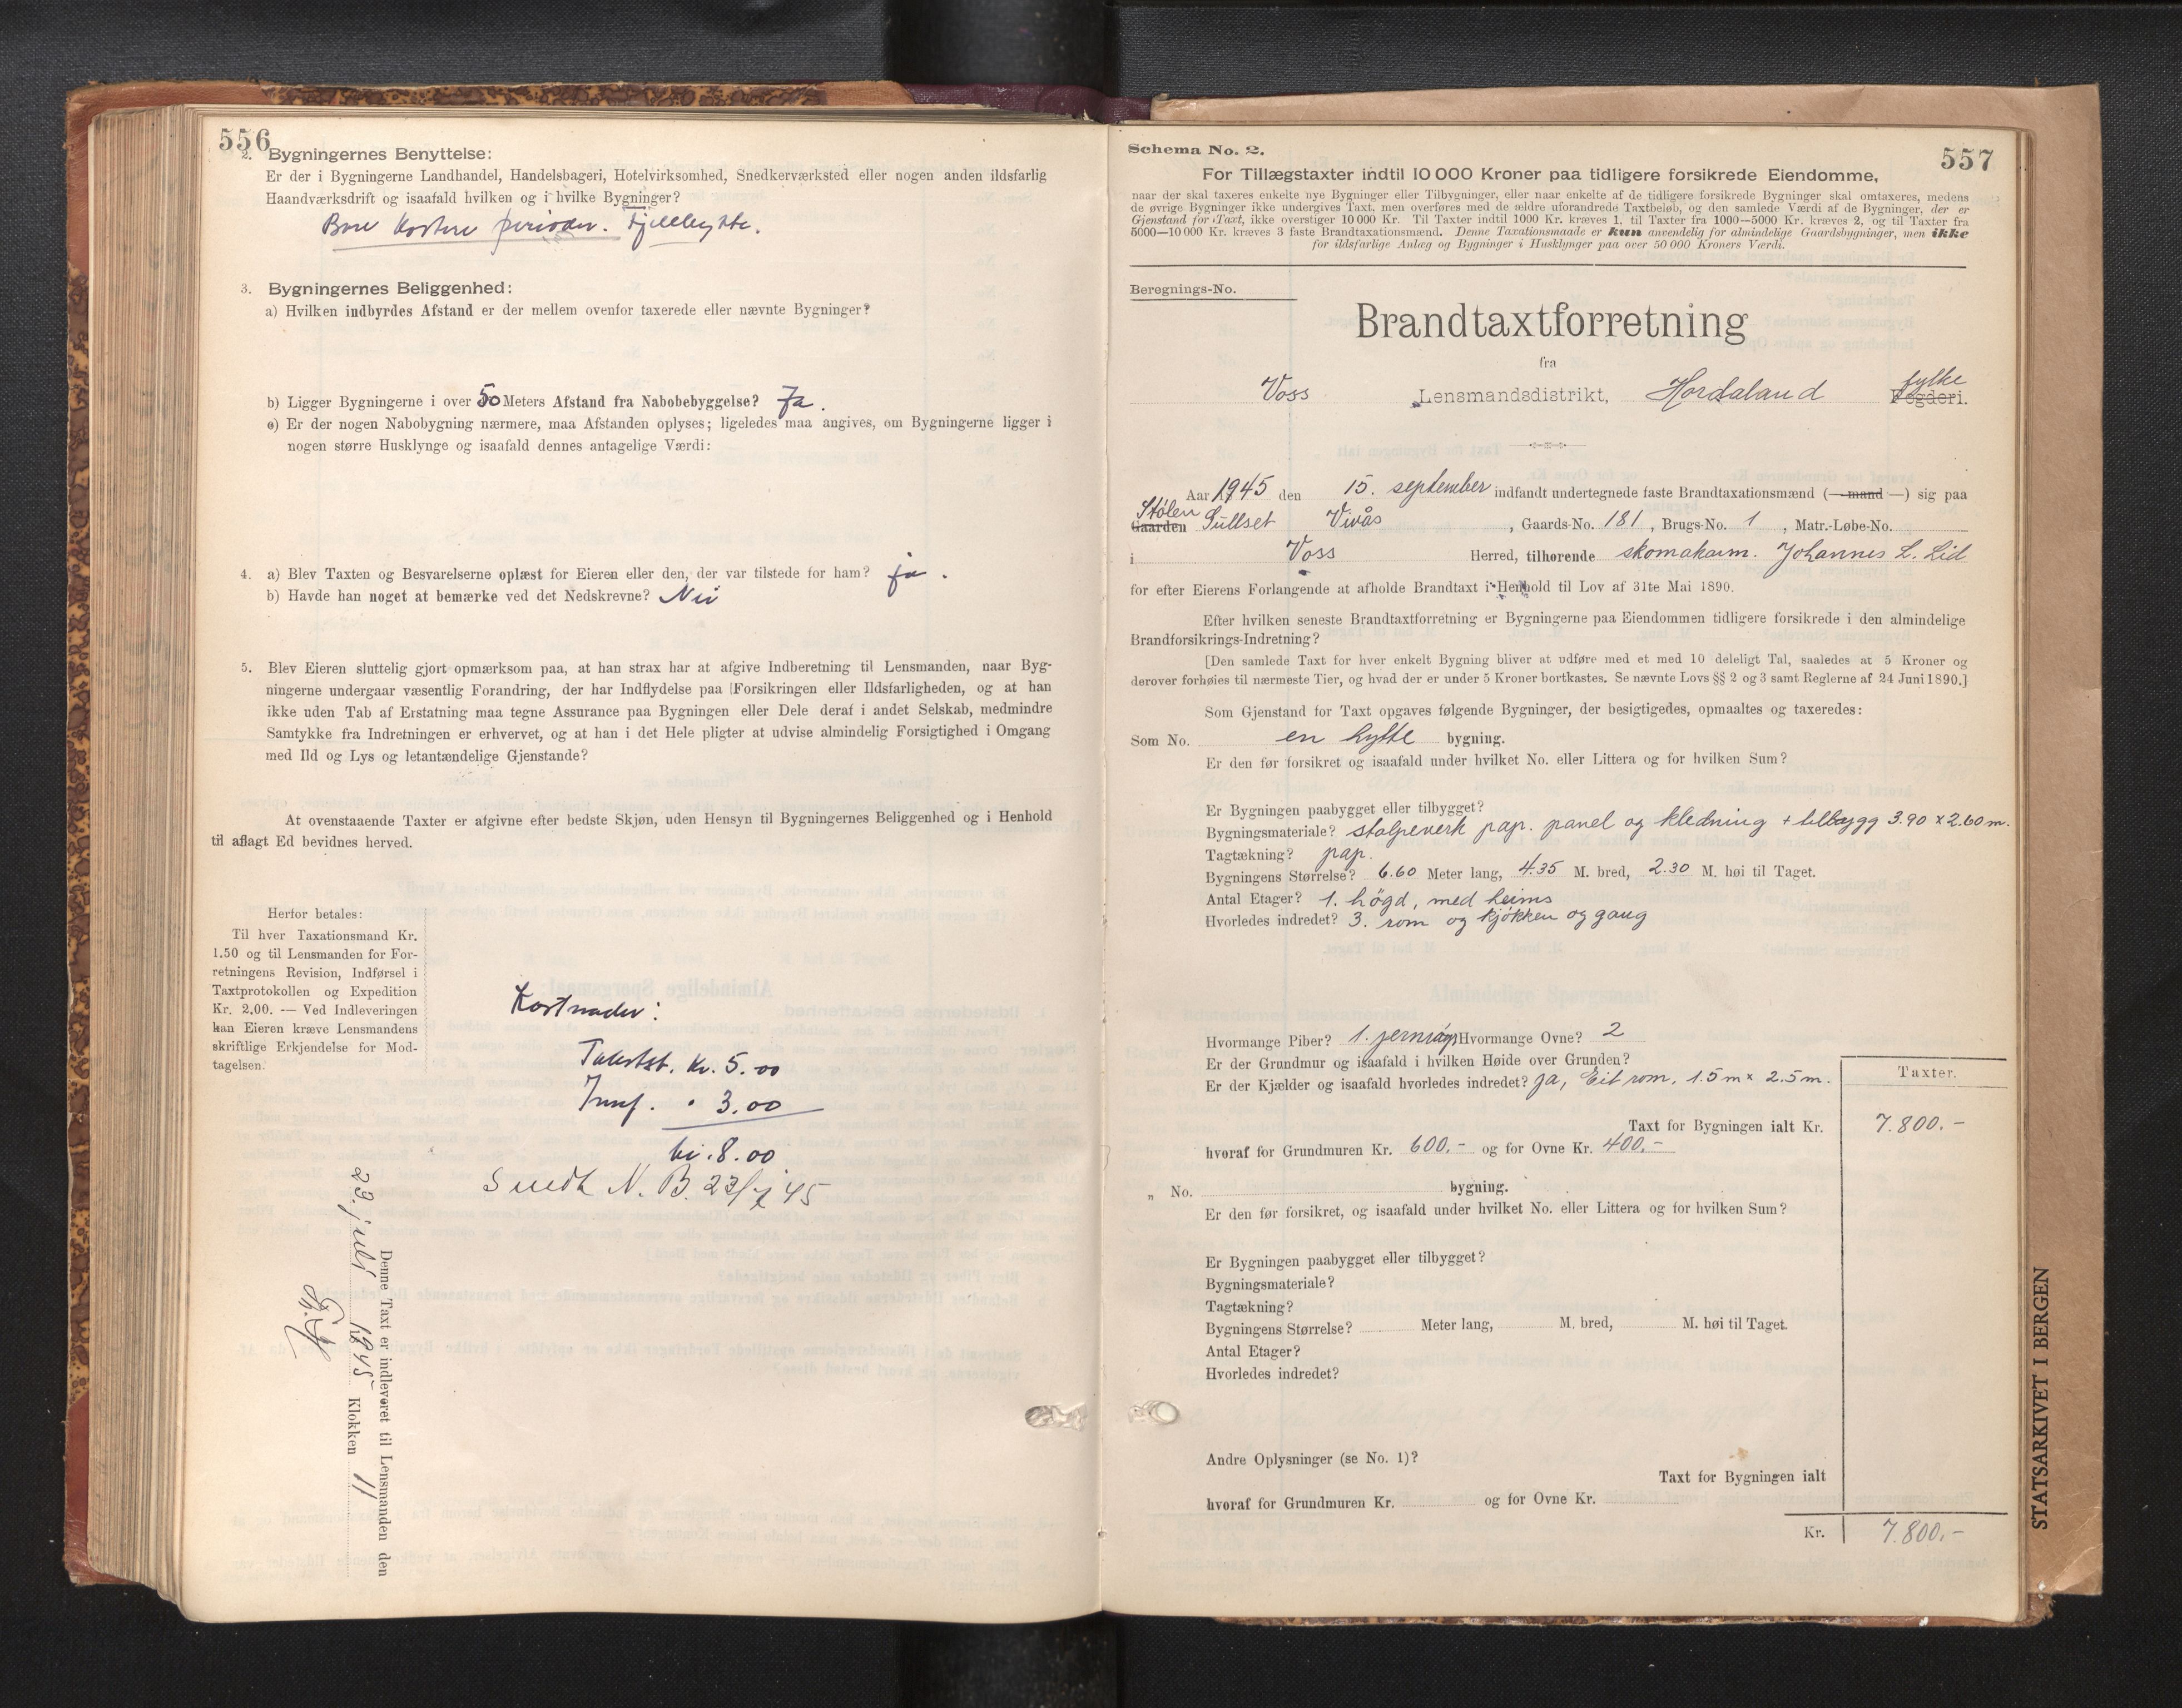 556
2. Bygningernes Benyttelse:
Er der i Bygningerne Landhandel, Handelsbageri, Hotelvirksomhed, Snedkerværksted eller nogen anden ildsfarlig
Haandværksdrift og isaafald hvilken og i hvilke Bygninger?
Bare kortere perioder. Fjellhytte.
3. Bygningernes Beliggenhed:
a) Hvilken indbyrdes Afstand er der mellem ovenfor taxerede eller nævnte Bygninger?
b) Ligger Bygningerne i over 50 Meters Afstand fra Nabobebyggelse? Ja.
c) Er der nogen Nabobygning nærmere, maa Afstanden oplyses; ligeledes maa angives, om Bygningerne ligger i
nogen større Husklynge og isaafald dennes antagelige Værdi:
4. a) Blev Taxten og Besvarelserne oplæst for Eieren eller den, der var tilstede for ham? ja.
b) Havde han noget at bemærke ved det Nedskrevne? Nei
5. Blev Eieren sluttelig gjort opmærksom paa, at han strax har at afgive Indberetning til Lensmanden, naar Byg-
ningerne undergaar væsentlig Forandring, der har Indflydelse paa Forsikringen eller Ildsfarligheden, og at han
ikke uden Tab af Erstatning maa tegne Assurance paa Bygningen eller Dele deraf i andet Selskab, medmindre
Samtykke fra Indretningen er erhvervet, og at han i det Hele pligter at udvise almindelig Forsigtighed i Omgang
med Ild og Lys og letantændelige Gjenstande?
At ovenstaaende Taxter er afgivne efter bedste Skjøn, uden Hensyn til Bygningernes Beliggenhed og i Henhold
til aflagt Ed bevidnes herved.
Herfor betales:
Til hver Taxationsmand Kr.
1.50 og til Lensmanden for For-
retningens Revision, Indførsel i
Taxtprotokollen og Expedition
Kr. 2.00. — Ved Indleveringen
kan Eieren kræve Lensmandens
skriftlige Erkjendelse for Mod-
tagelsen.
Kostnader:
Takstst. Kr. 5.00
Innf. " 3.00
kr. 8.00
Sendt N. B. 23/ 45
Denne Taxt er indleveret til Lensmanden den
29. juli 1945 Klokken 11
557
Schema No. 2.
For Tillægstaxter indtil 10 000 Kroner paa tidligere forsikrede Eiendomme,
naar der skal taxeres enkelte nye Bygninger eller Tilbygninger, eller naar enkelte af de tidligere forsikrede Bygninger skal omtaxeres, medens
de øvrige Bygninger ikke undergives Taxt, men overføres med de ældre uforandrede Taxtbeløb, og den samlede Værdi af de Bygninger, der er
Gjenstand for Taxt, ikke overstiger 10 000 Kr. Til Taxter indtil 1000 Kr. kræves 1, til Taxter fra 1000—5000 Kr. kræves 2, og til Taxter fra
5000—10 000 Kr. kræves 3 faste Brandtaxationsmænd. Denne Taxationsmaade er kun anvendelig for almindelige Gaardsbygninger, men ikke
for ildsfarlige Anlæg og Bygninger i Husklynger paa over 50 000 Kroners Værdi.
Beregnings-No.
Brandtaxtforretning
fra
Voss Lensmandsdistrikt, Hordaland fylke Fogderi.
Aar 1945 den 15. september indfandt undertegnede faste Brandtaxationsmænd (—mand—) sig paa
Stølen Gaarden Sullset Vivås, Gaards-No. 181, Brugs-No. 1, Matr.-Løbe-No.
i Voss Herred, tilhørende skomakarm. Johannes L. Lid
for efter Eierens Forlangende at afholde Brandtaxt i Henhold til Lov af 31te Mai 1890.
Efter hvilken seneste Brandtaxtforretning er Bygningerne paa Eiendommen tidligere forsikrede i den almindelige
Brandforsikrings-Indretning?
[Den samlede Taxt for hver enkelt Bygning bliver at udføre med et med 10 deleligt Tal, saaledes at 5 Kroner og
derover forhøies til nærmeste Tier, og hvad der er under 5 Kroner bortkastes. Se nævnte Lovs §§ 2 og 3 samt Reglerne af 24 Juni 1890.]
Som Gjenstand for Taxt opgaves følgende Bygninger, der besigtigedes, opmaaltes og taxeredes:
Som No. en hytte bygning.
Er den før forsikret og isaafald under hvilket No. eller Littera og for hvilken Sum?
Er Bygningen paabygget eller tilbygget?
Bygningsmateriale? stolpeverk pap. panel og kledning + tilbygg 3.90 x 2.60 m.
Tagtækning? pap.
Bygningens Størrelse? 6.60 Meter lang, 4.35 M. bred, 2.30 M. høi til Taget.
Antal Etager? 1. høgd, med heims
Hvorledes indredet? 3. rom og kjøkken og gang
Hvormange Piber? 1. jernrøyr Hvormange Ovne? 2
Er der Grundmur og isaafald i hvilken Høide over Grunden?
Er der Kjælder og isaafald hvorledes indredet? ja, Eit rom, 1.5 m x 2.5 m.
Taxter.
Taxt for Bygningen ialt Kr. 7.800.-
hvoraf for Grundmuren Kr. 600.- og for Ovne Kr. 400.-
„ No. bygning.
Er den før forsikret, og isaafald under hvilket No. eller Littera og for hvilken Sum?
Er Bygningen paabygget eller tilbygget?
Bygningsmateriale?
Tagtækning?
Bygningens Størrelse? Meter lang, M. bred, M. høi til Taget.
Antal Etager?
Hvorledes indredet?
Andre Oplysninger (se No. 1)?
Taxt for Bygningen ialt
hvoraf for Grundmuren Kr. og for Ovne Kr.
Kr. 7.800.-
STATSARKIVET I BERGEN